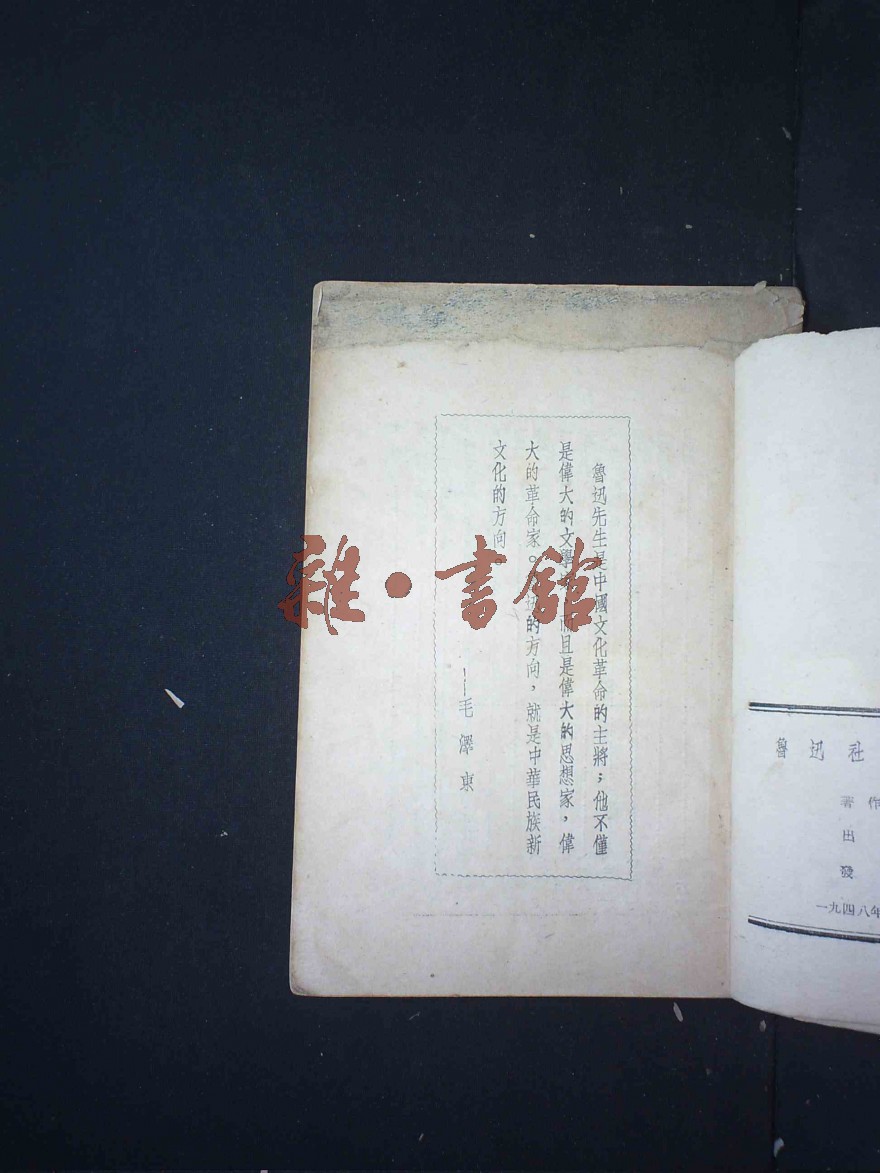 魯迅社
著作
出
發
一九四八年
魯迅先生是中國文化革命的主將；他不僅
是偉大的文學而且是偉大的思想家，偉
大的革命家。迅的方向，就是中華民族新
文化的方向。
——毛澤東
雜·書館